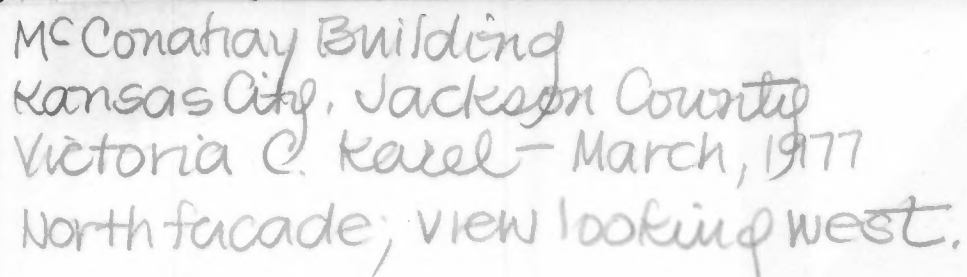 McConahay Building
Kansas City, Jackson County
Victoria C. Karel – March, 1977
North facade; view looking west.